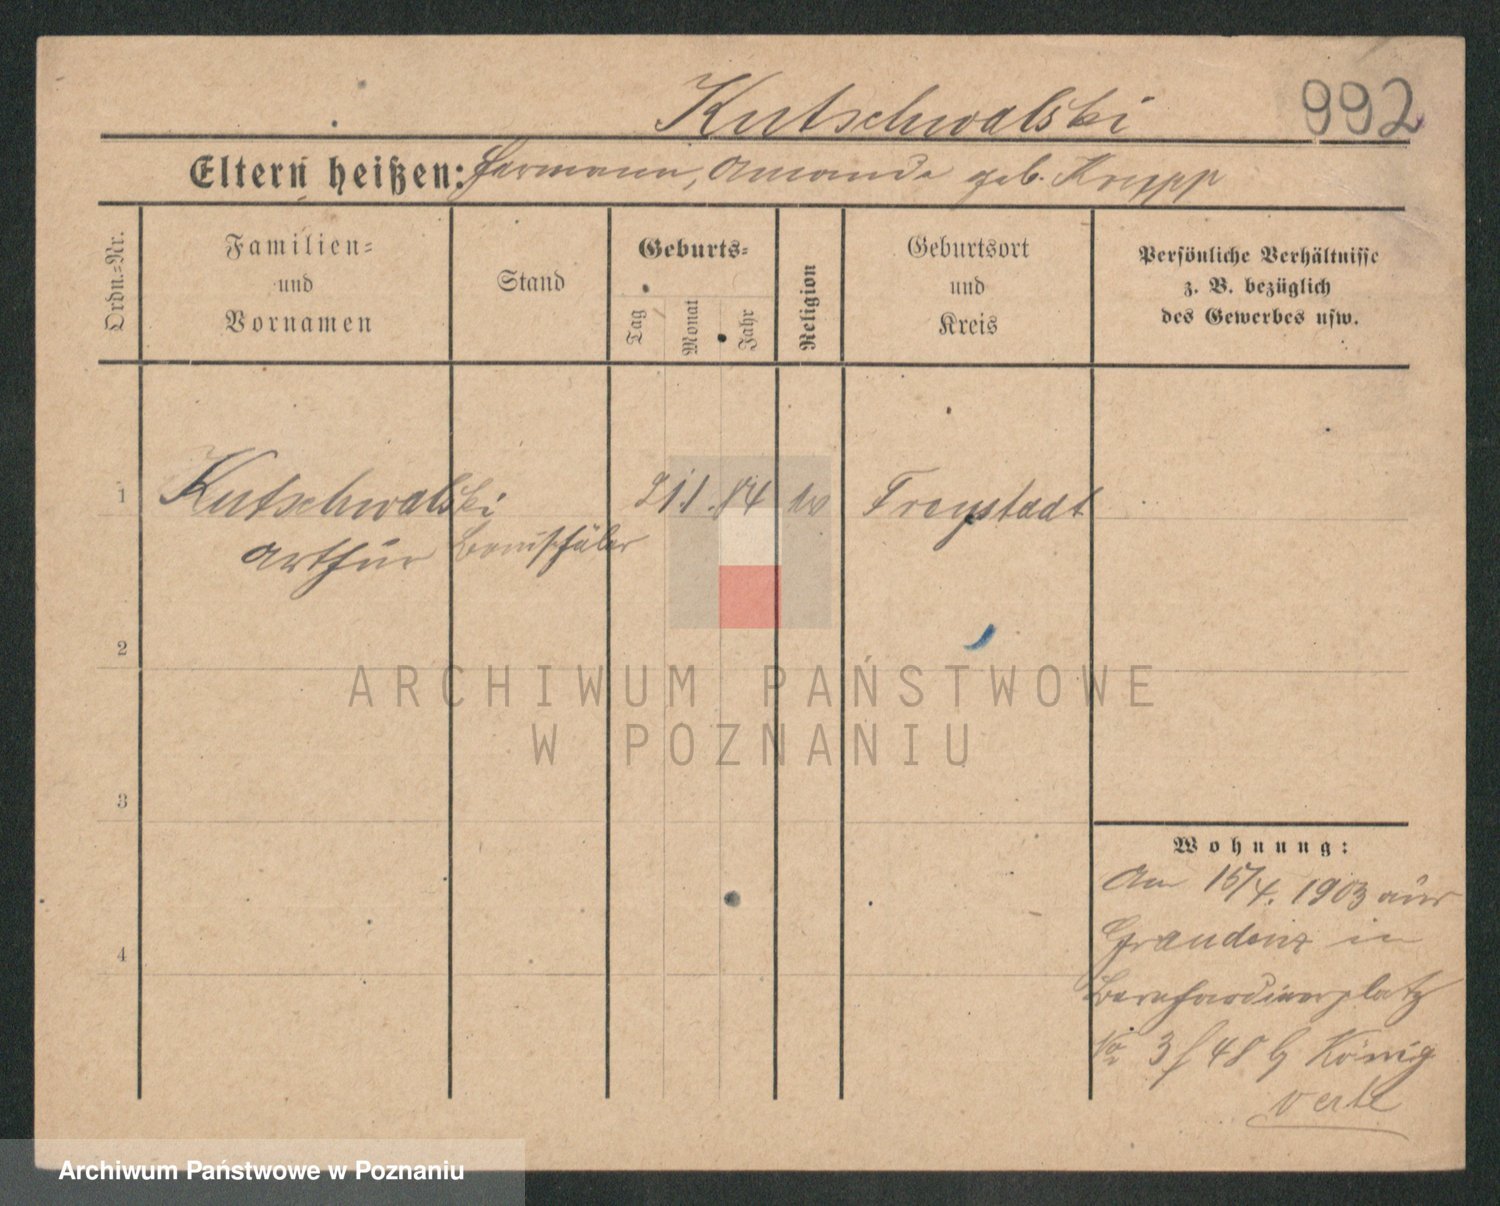 Kutschwalski 992
Eltern heißen: Hermann, Amanda geb. Krupp
Ordn.-Nr.
Familien-
und
Vornamen
Stand
Geburts-
Tag
Monat
Jahr
Religion
Geburtsort
und
Kreis
Persönliche Verhältnisse
z. B. bezüglich
des Gewerbes usw.
1 Kutschwalski 21.1.84 Freystadt
Arthur Bauschüler
2
3
4
Wohnung:
Am 15/4. 1903 aus
Graudenz in
Bernhardinerplatz
No 3 48 König
verte
ARCHIWUM PAŃSTWOWE
W POZNANIU
Archiwum Państwowe w Poznaniu